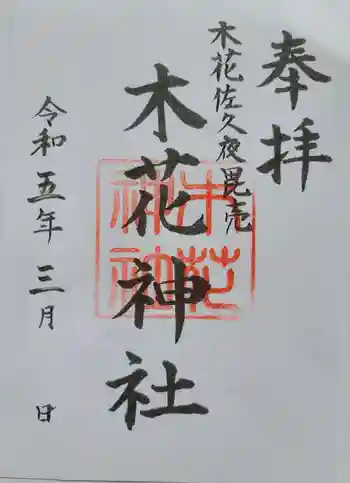 奉拝
木花佐久夜毘売
木花神社
令和五年三月 日
木花
神社